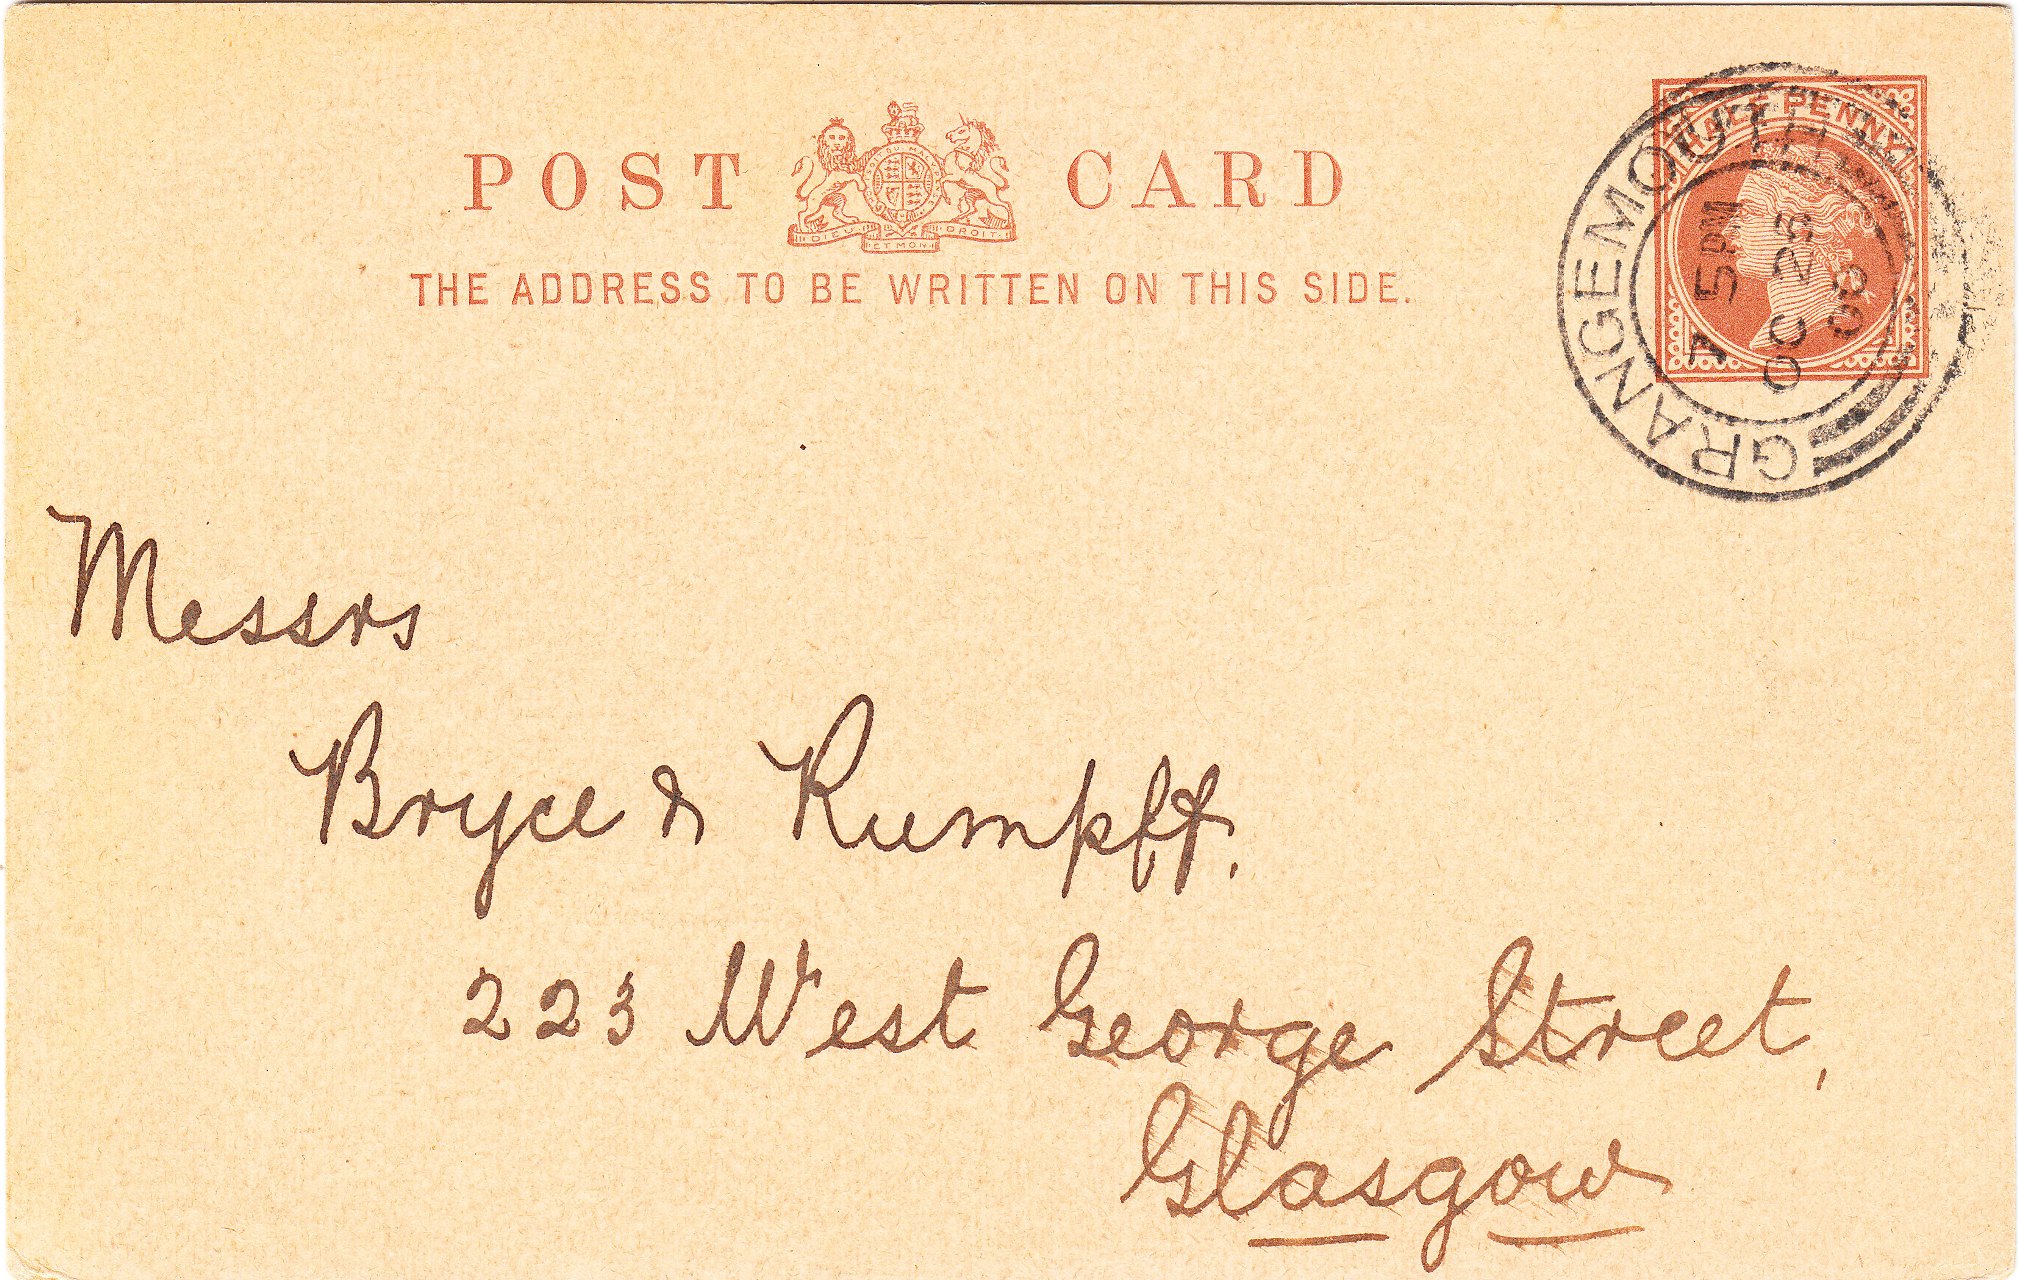 POST CARD
DIEU ET MON DROIT
THE ADDRESS TO BE WRITTEN ON THIS SIDE.
HALF PENNY
GRANGEMOUTH
5PM
OC
Messrs
Bryce & Rumpff,
223 West George Street,
Glasgow